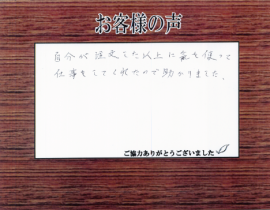 お客様の声
自分が注文した以上に気を使って
仕事をしてくれたので助かりました。
ご協力ありがとうございました